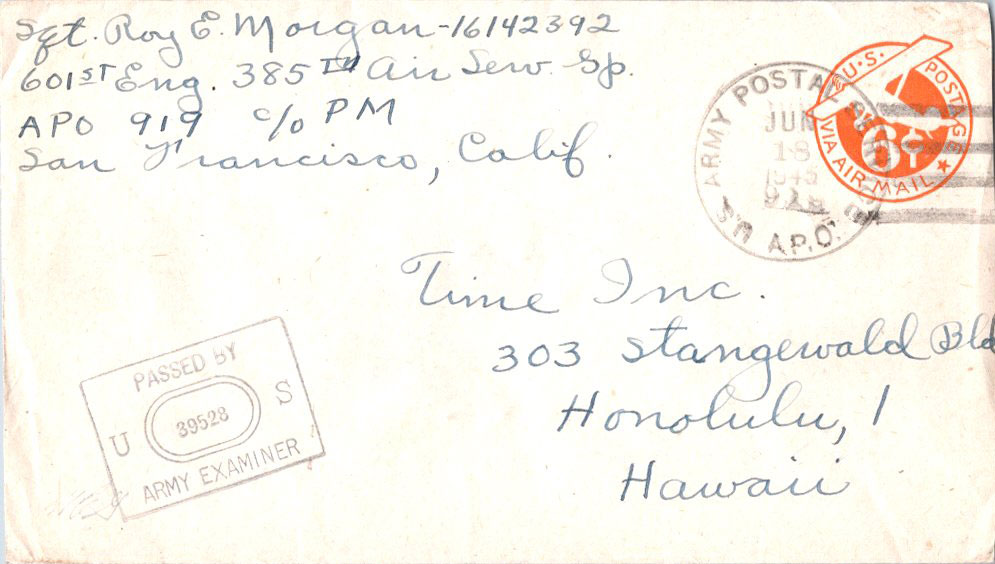 Sgt. Roy E. Morgan-16142392
601ST Eng. 385TH Air Serv. Gp.
APO 919 c/o PM
San Francisco, Calif.
U.S. POSTAGE
6¢
VIA AIR MAIL
ARMY POSTAL
JUN
18
U.S. A.P.O.
Time Inc.
303 Stangewald Bld
Honolulu, 1
Hawaii
PASSED BY
U 39528 S
ARMY EXAMINER